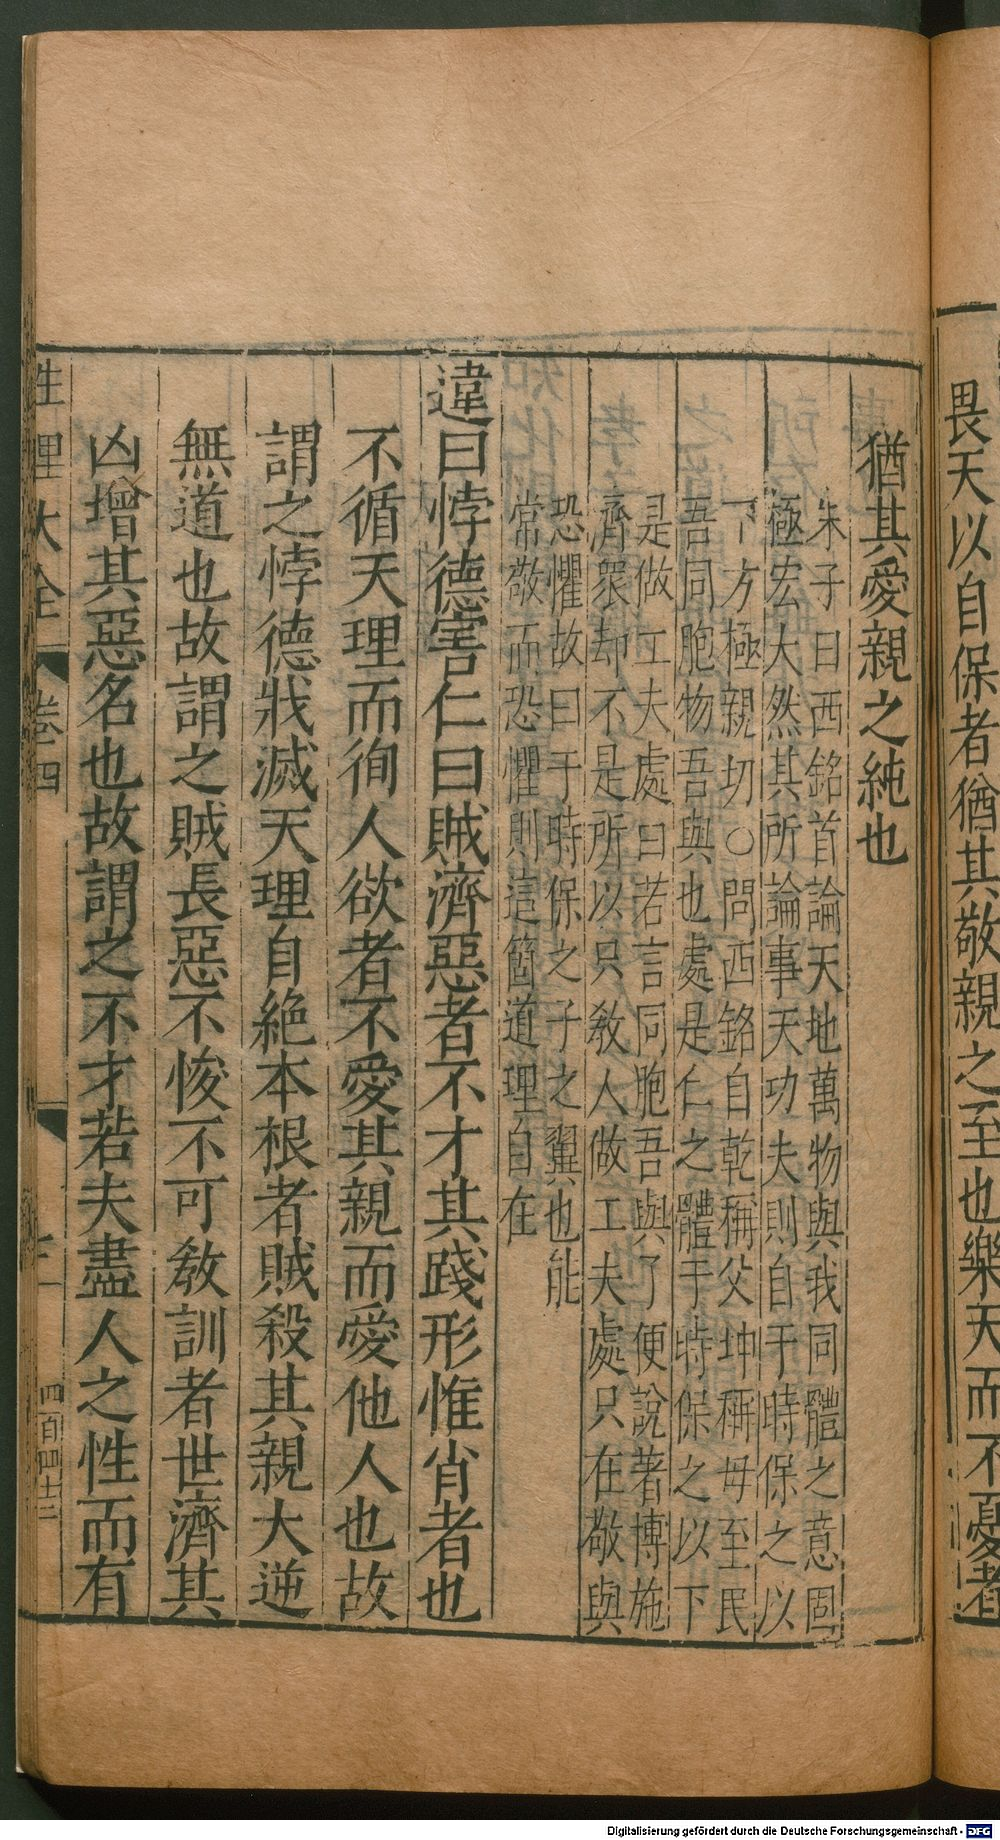 畏天以自保者猶其敬親之至也樂天而不憂者
猶其愛親之純也
朱子曰西銘首論天地萬物與我同體之意固
極宏大然其所論事天功夫則自于時保之以
下方極親切〇問西銘自乾稱父坤稱母至民
吾同胞物吾與也處是仁之體于時保之以下
是做工夫處曰若言同胞吾與了便說著博施
濟衆却不是所以只教人做工夫處只在敬與
恐懼故曰于時保之子之翼也能
常敬而恐懼則這箇道理自在
違曰悖德害仁曰賊濟惡者不才其踐形惟肖者也
不循天理而徇人欲者不愛其親而愛他人也故
謂之悖德戕滅天理自絶本根者賊殺其親大逆
無道也故謂之賊長惡不悛不可教訓者世濟其
凶增其惡名也故謂之不才若夫盡人之性而有
性理大全
卷四
四百四十三
Digitalisierung gefördert durch die Deutsche Forschungsgemeinschaft - DFG